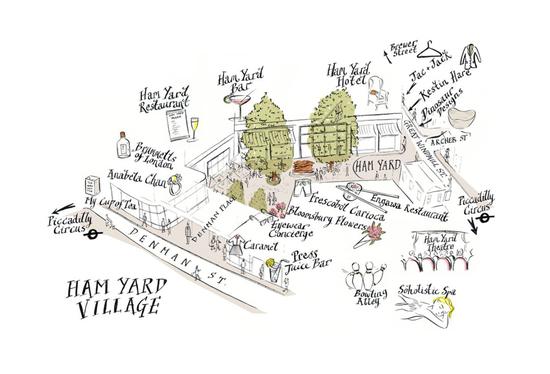 Brewer
Street
Jac + Jack
Kestin Hare
Dinosaur
Designs
Ham Yard
Hotel
Ham Yard
Bar
Ham Yard
Restaurant
GREAT WINDMILL ST.
ARCHER ST
Brunnetts
of London
Anabela Chan
My Cup of Tea
Piccadilly
Circus
HAM YARD
DENMAN PLACE
Engawa Restaurant
Frescobol Carioca
Bloomsbury Flowers
Eyewear
Concierge
Caramel
Press
Juice Bar
DENMAN ST.
Piccadilly
Circus
Ham Yard
Theatre
Bowling
Alley
Soholistic Spa
HAM YARD
VILLAGE